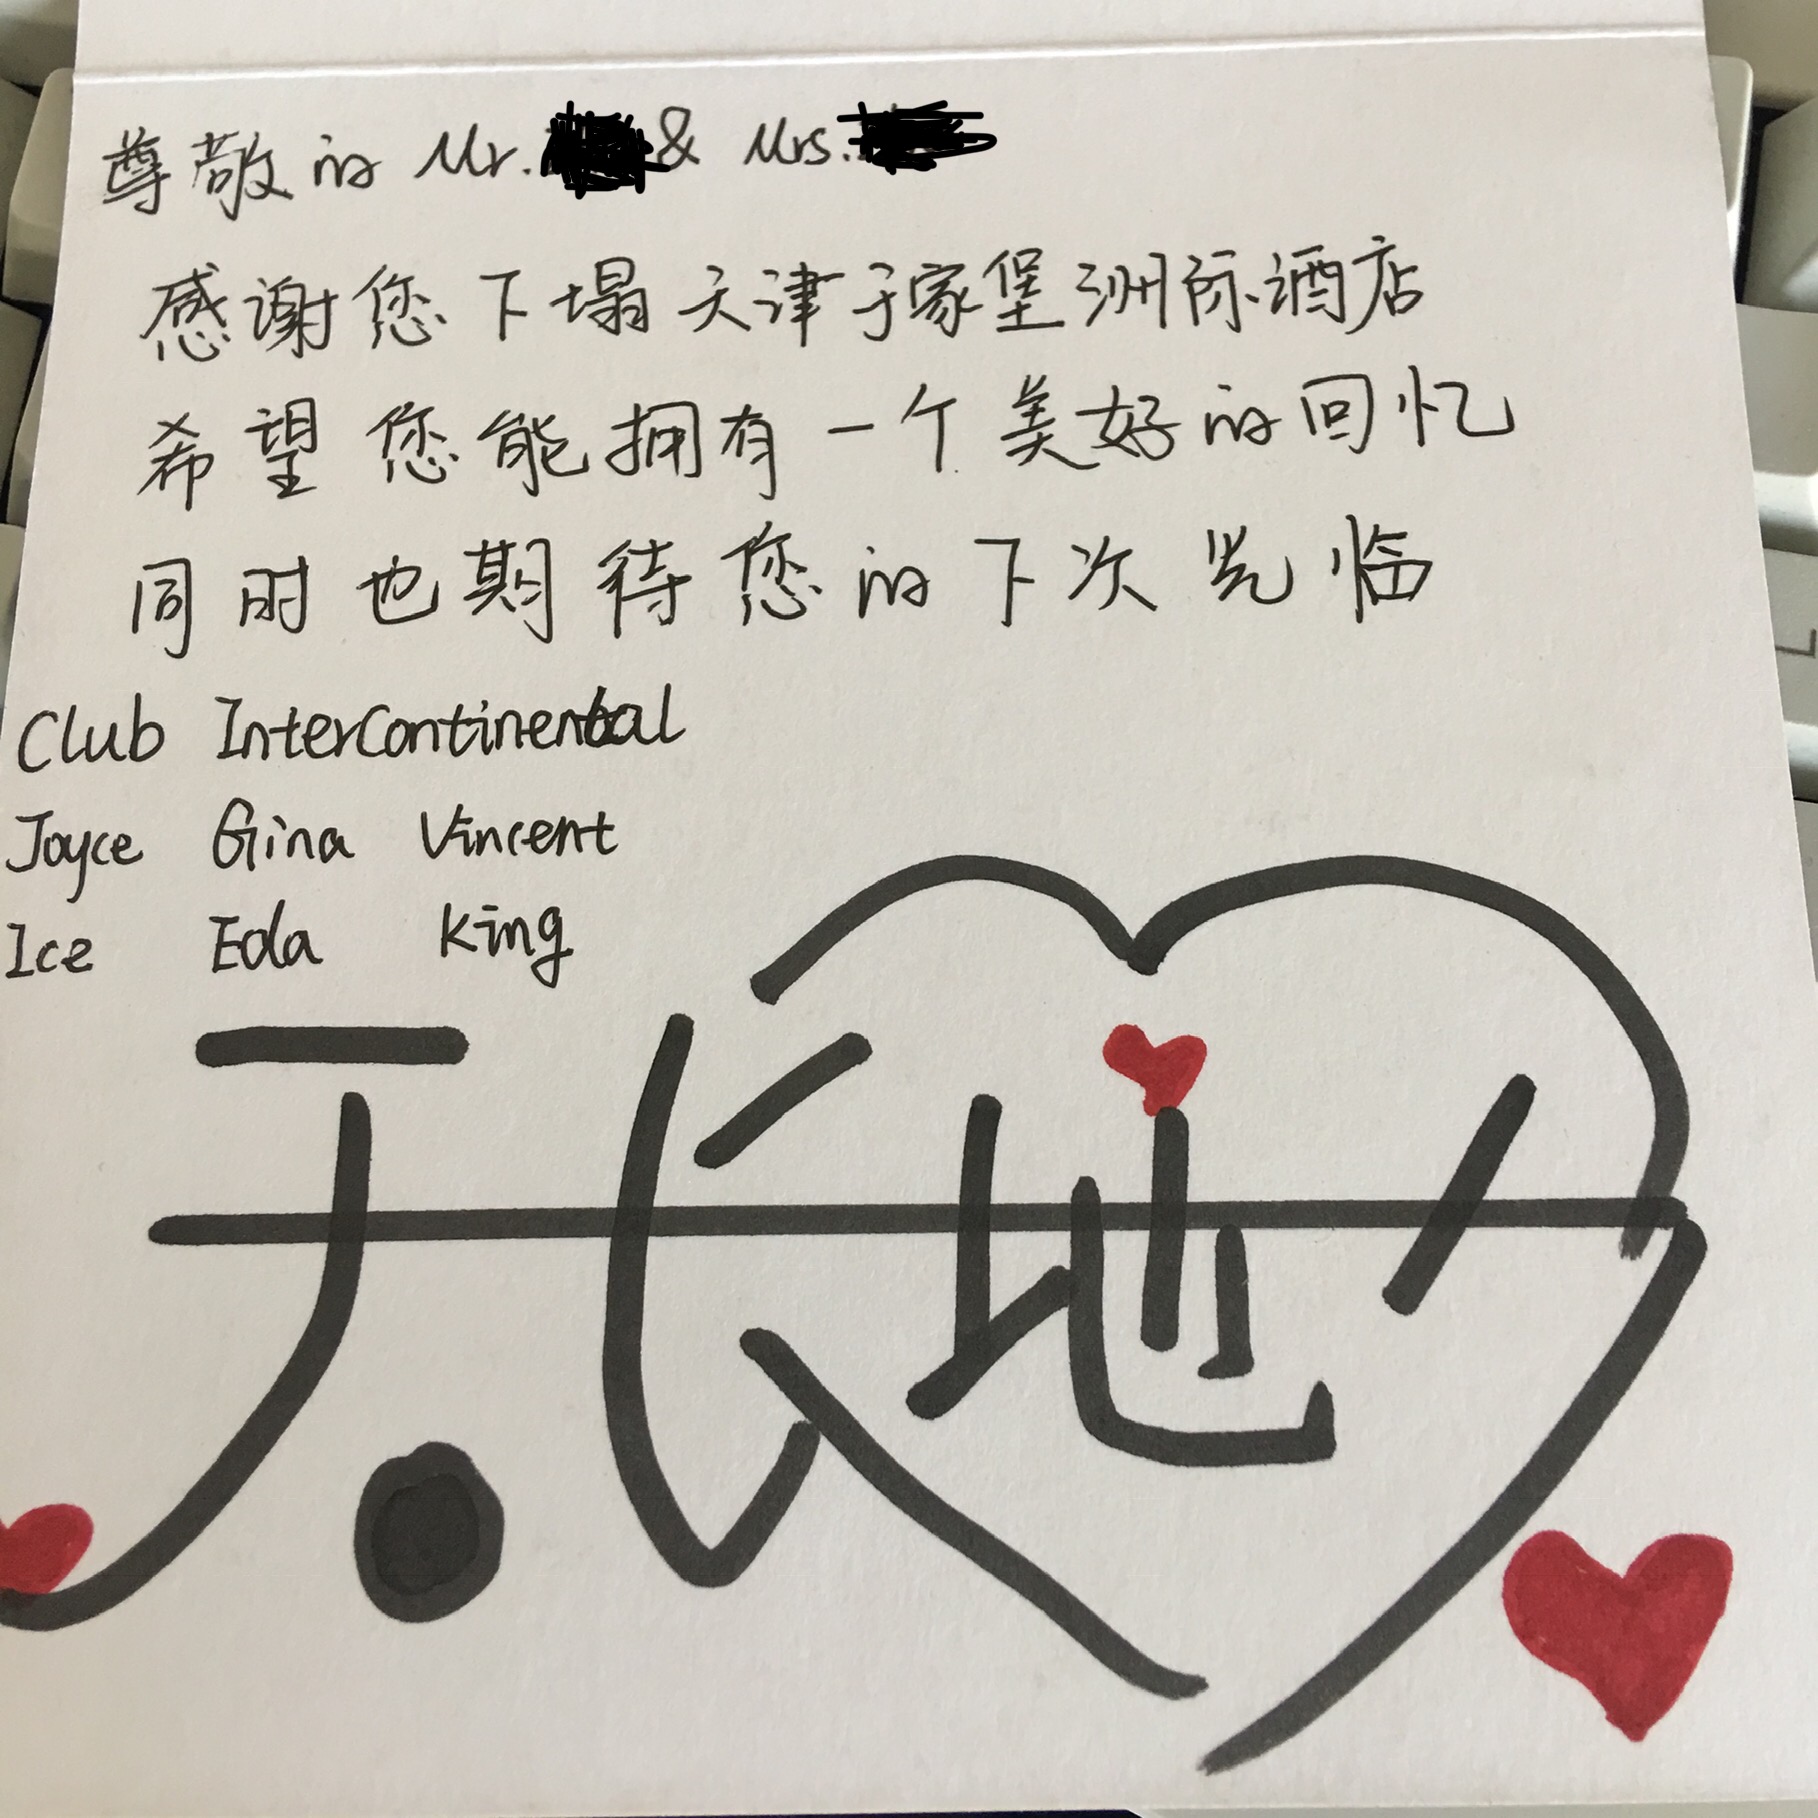 尊敬的 Mr. & Mrs.
感谢您下塌天津于家堡洲际酒店
希望您能拥有一个美好的回忆
同时也期待您的下次光临
Club InterContinental
Joyce Gina Vincent
Ice Eda King
天长地久